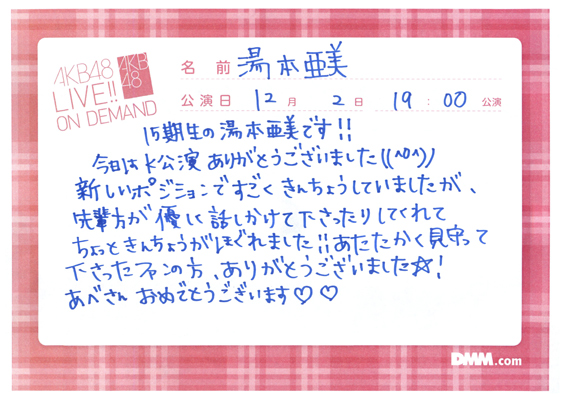 AKB48
LIVE!!
ON DEMAND
AKB
48
名 前 湯本亜美
公演日 12月 2日 19:00 公演
15期生の湯本亜美です!!
今日はK公演ありがとうございました((^o^))
新しいポジションですごくきんちょうしていましたが、
先輩方が優しく話しかけて下さったりしてくれて
ちょっときんちょうがほぐれました!!あたたかく見守って
下さったファンの方、ありがとうございました☆!
あべさん おめでとうございます♡♡
DMM.com